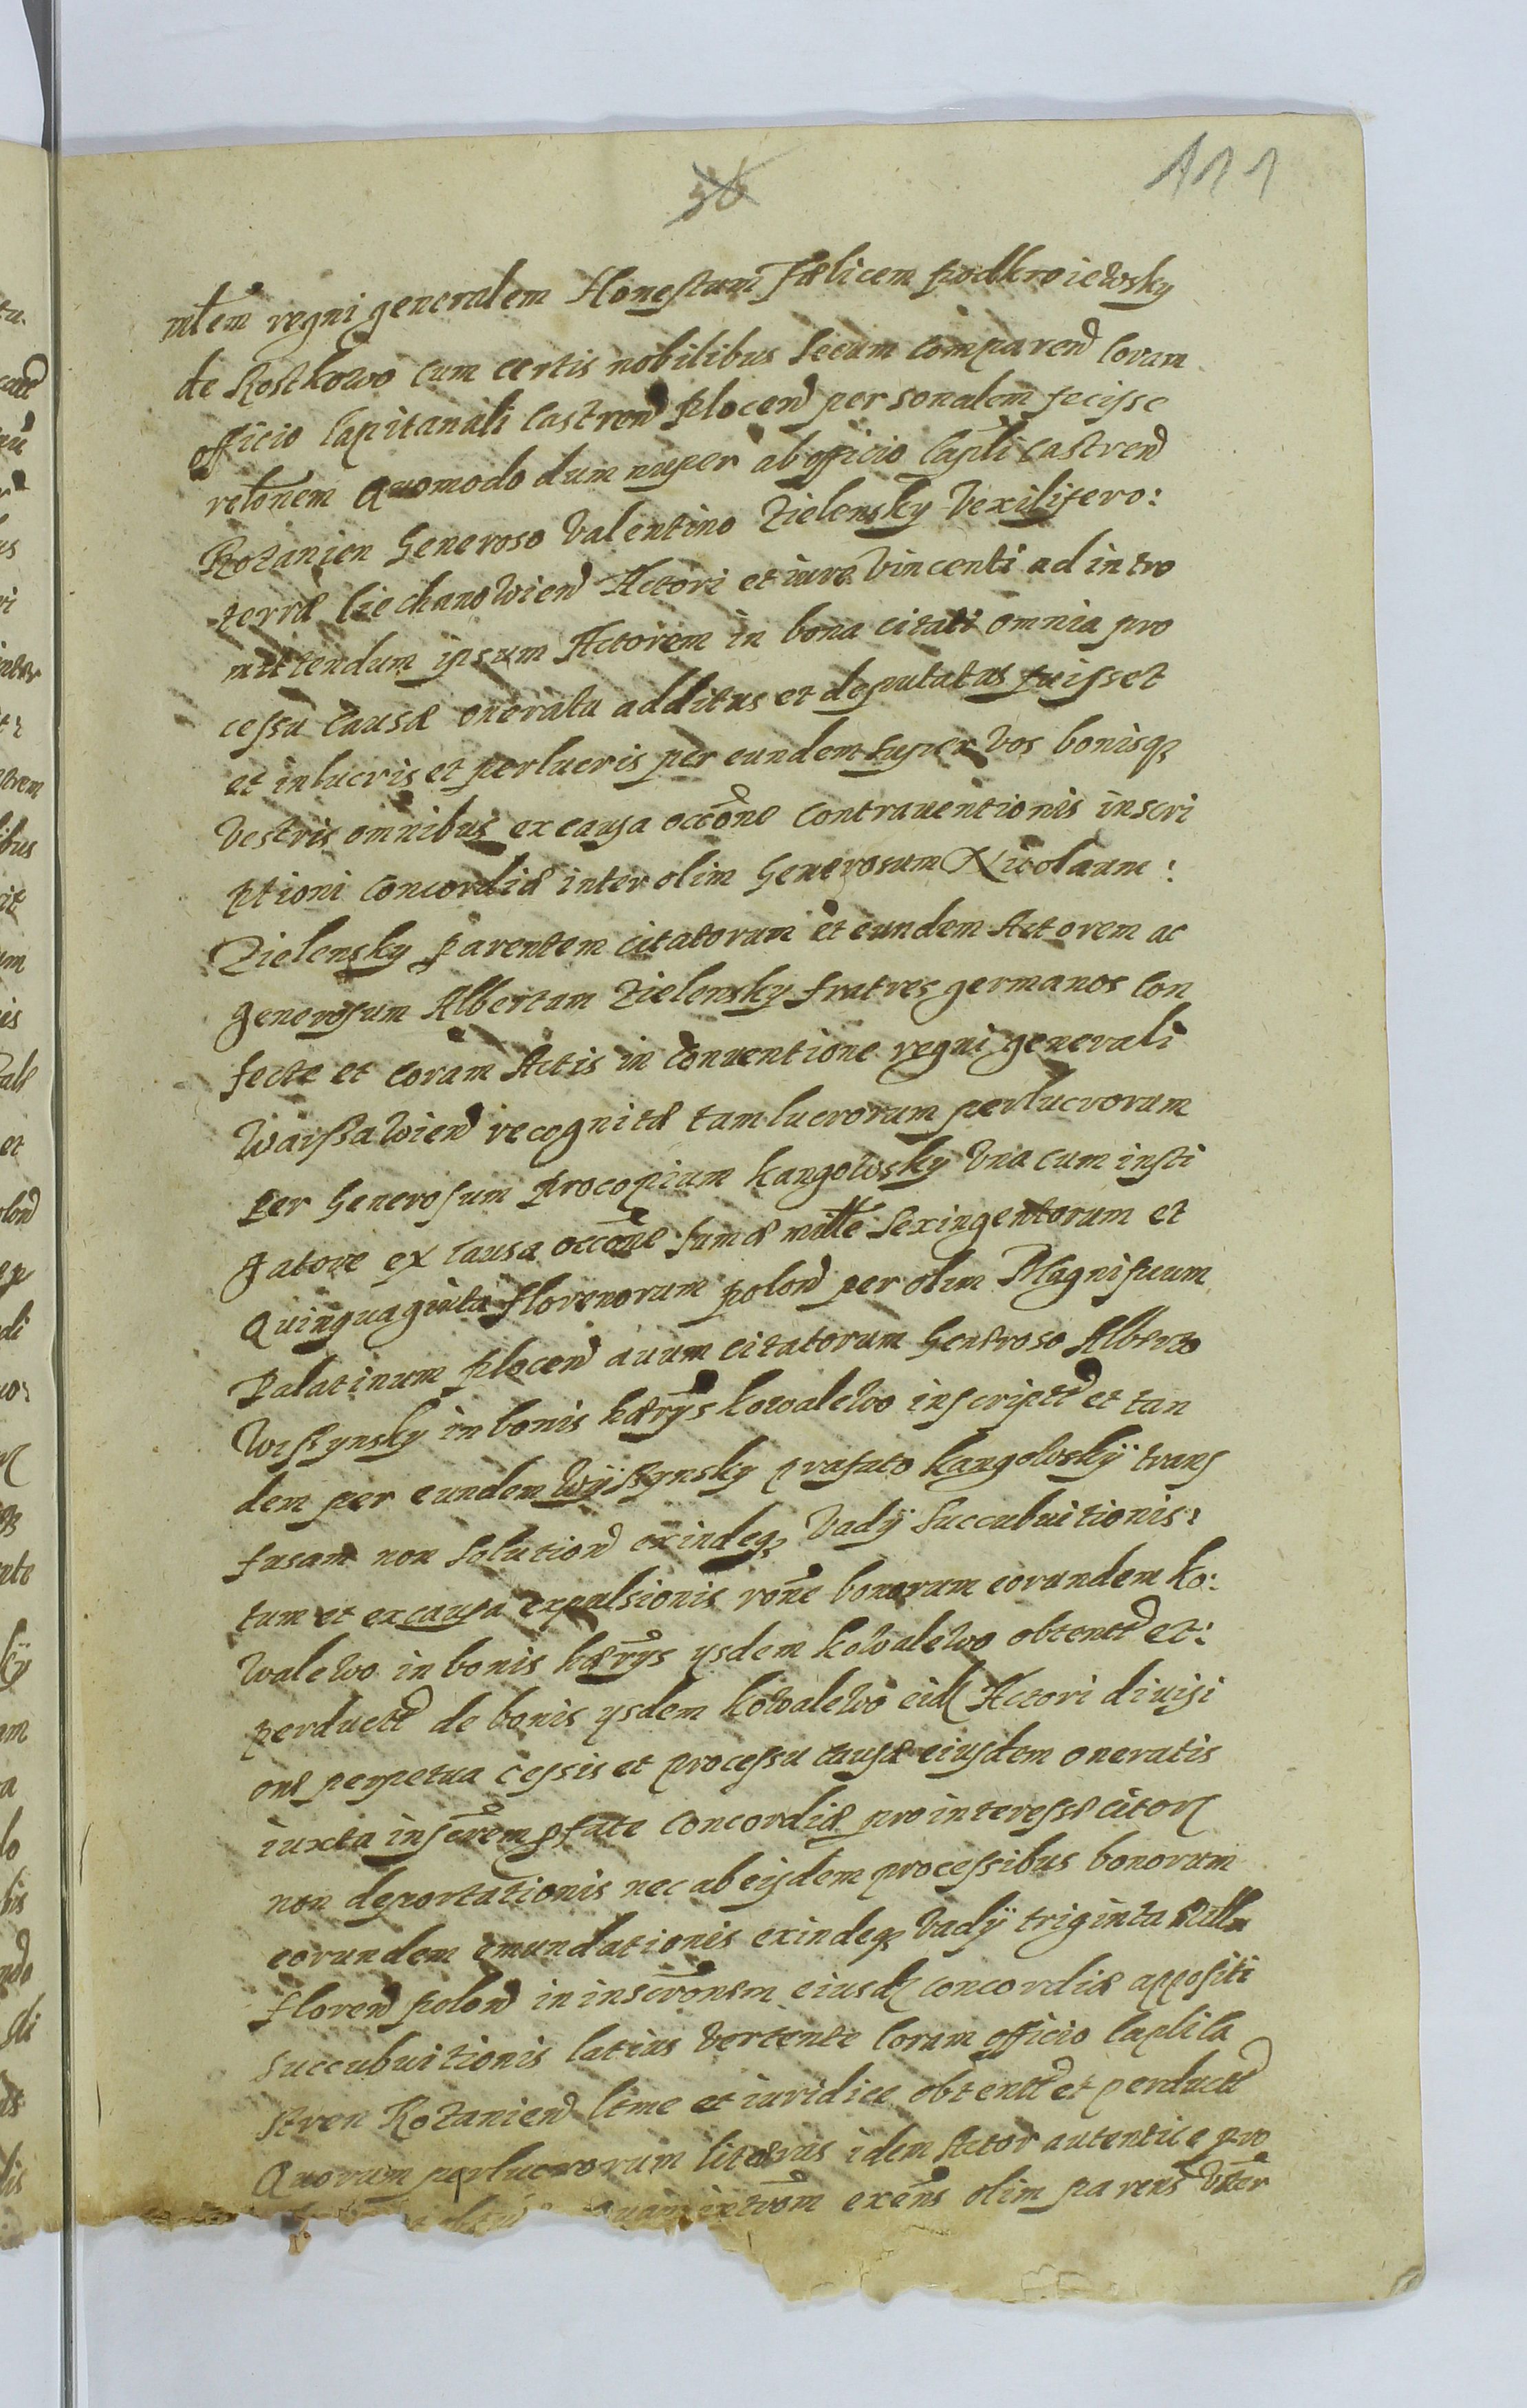 36
111
mlem regni generalem Honestum Fælicem podkroiewsky
de Rostkowo cum certis nobilibus Secum comparend Coram
officio Capitanali Castrend plocend personalem fecisse
relonem Quomodo dum nuper ab officio Capli castrend
Rozanien Generoso Valentino Zielensky Vexilifero:
terræ Ciechanowiend Actori et iure Vincenti ad intro
mittendum ipsum Actorem in bona citati omnia pro
cessu causæ onerata additus et deputatus fuisset
et in lucris et perlucris per eundem super Vos bonisqz
Vestris omnibus ex causa occõne contrauentionis inscri
ptioni concordiæ inter olim Generosum Nicolaum:
Zielensky parentem citatorum et eundem Actorem ac
generosum Albertum Zielensky fratres germanos con
fecte et coram Actis in conuentione regni generali
Warssawiend recognitæ tam lucrorum perlucrorum
per Generosum Procopium kangowsky Vna cum insti
gatore ex causa occõne sumæ mille Sexingentorum et
Quinquaginta florenorum polond per olim Magnificum
Palatinum plocend auum citatorum Generoso Alberto
Wissynsky in bonis hærys kowalewo inscriptd et tan
dem per eundem Wyssynsky prafato kangowsky transf
fusam non Solutiond exindeqz Vady Succubuitionis:
tum et ex causa expulsionis rõne bonorum eorundem ko:
walewo in bonis hærys ysdem kowalewo obtentd et:
perductd de bonis ysdem kowalewo eid Actori diuisi
one perpetua cessis et processu causæ eiusdem oneratis
iuxta inscrem pfate concordiæ pro interesse citor
non deportationis nec ab eisdem processibus bonorum
eorundem emundationis exindeqz Vady triginta Mille
florend polond in inscronem eiusd concordiæ appositi
succubuitionis latius Vertente Coram officio Capli Ca
stren Rozaniend ltme et iuridice obtentd et perductd
Quorum perlucrorum literas idem Actor autentice pro
exens olim parens Vter